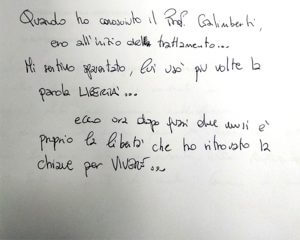 Quando ho conosciuto il Prof. Galimberti,
ero all'inizio del trattamento...
Mi sentivo spaventato, lui usò più volte la
parola LIBERTÀ...
ecco ora dopo quasi due mesi è
proprio la libertà che ho ritrovato la
chiave per VIVERE...